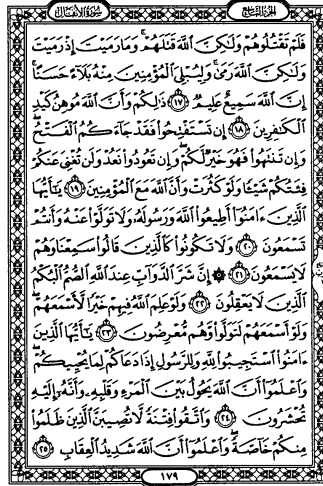 سُورَةُ الأَنفَالِ الجُزءُ التَّاسِعُ
فَلَمْ تَقْتُلُوهُمْ وَلَٰكِنَّ ٱللَّهَ قَتَلَهُمْ ۚ وَمَا رَمَيْتَ إِذْ رَمَيْتَ
وَلَٰكِنَّ ٱللَّهَ رَمَىٰ ۚ وَلِيُبْلِىَ ٱلْمُؤْمِنِينَ مِنْهُ بَلَآءً حَسَنًا ۚ
إِنَّ ٱللَّهَ سَمِيعٌ عَلِيمٌ ۝١٧ ذَٰلِكُمْ وَأَنَّ ٱللَّهَ مُوهِنُ كَيْدِ
ٱلْكَٰفِرِينَ ۝١٨ إِن تَسْتَفْتِحُوا۟ فَقَدْ جَآءَكُمُ ٱلْفَتْحُ ۖ
وَإِن تَنتَهُوا۟ فَهُوَ خَيْرٌ لَّكُمْ ۖ وَإِن تَعُودُوا۟ نَعُدْ وَلَن تُغْنِىَ عَنكُمْ
فِئَتُكُمْ شَيْـًٔا وَلَوْ كَثُرَتْ وَأَنَّ ٱللَّهَ مَعَ ٱلْمُؤْمِنِينَ ۝١٩ يَٰٓأَيُّهَا
ٱلَّذِينَ ءَامَنُوٓا۟ أَطِيعُوا۟ ٱللَّهَ وَرَسُولَهُۥ وَلَا تَوَلَّوْا۟ عَنْهُ وَأَنتُمْ
تَسْمَعُونَ ۝٢٠ وَلَا تَكُونُوا۟ كَٱلَّذِينَ قَالُوا۟ سَمِعْنَا وَهُمْ
لَا يَسْمَعُونَ ۝٢١ ۞ إِنَّ شَرَّ ٱلدَّوَآبِّ عِندَ ٱللَّهِ ٱلصُّمُّ ٱلْبُكْمُ
ٱلَّذِينَ لَا يَعْقِلُونَ ۝٢٢ وَلَوْ عَلِمَ ٱللَّهُ فِيهِمْ خَيْرًا لَّأَسْمَعَهُمْ ۖ
وَلَوْ أَسْمَعَهُمْ لَتَوَلَّوا۟ وَّهُم مُّعْرِضُونَ ۝٢٣ يَٰٓأَيُّهَا ٱلَّذِينَ
ءَامَنُوا۟ ٱسْتَجِيبُوا۟ لِلَّهِ وَلِلرَّسُولِ إِذَا دَعَاكُمْ لِمَا يُحْيِيكُمْ ۖ
وَٱعْلَمُوٓا۟ أَنَّ ٱللَّهَ يَحُولُ بَيْنَ ٱلْمَرْءِ وَقَلْبِهِۦ وَأَنَّهُۥٓ إِلَيْهِ
تُحْشَرُونَ ۝٢٤ وَٱتَّقُوا۟ فِتْنَةً لَّا تُصِيبَنَّ ٱلَّذِينَ ظَلَمُوا۟
مِنكُمْ خَآصَّةً ۖ وَٱعْلَمُوٓا۟ أَنَّ ٱللَّهَ شَدِيدُ ٱلْعِقَابِ ۝٢٥
١٧٩